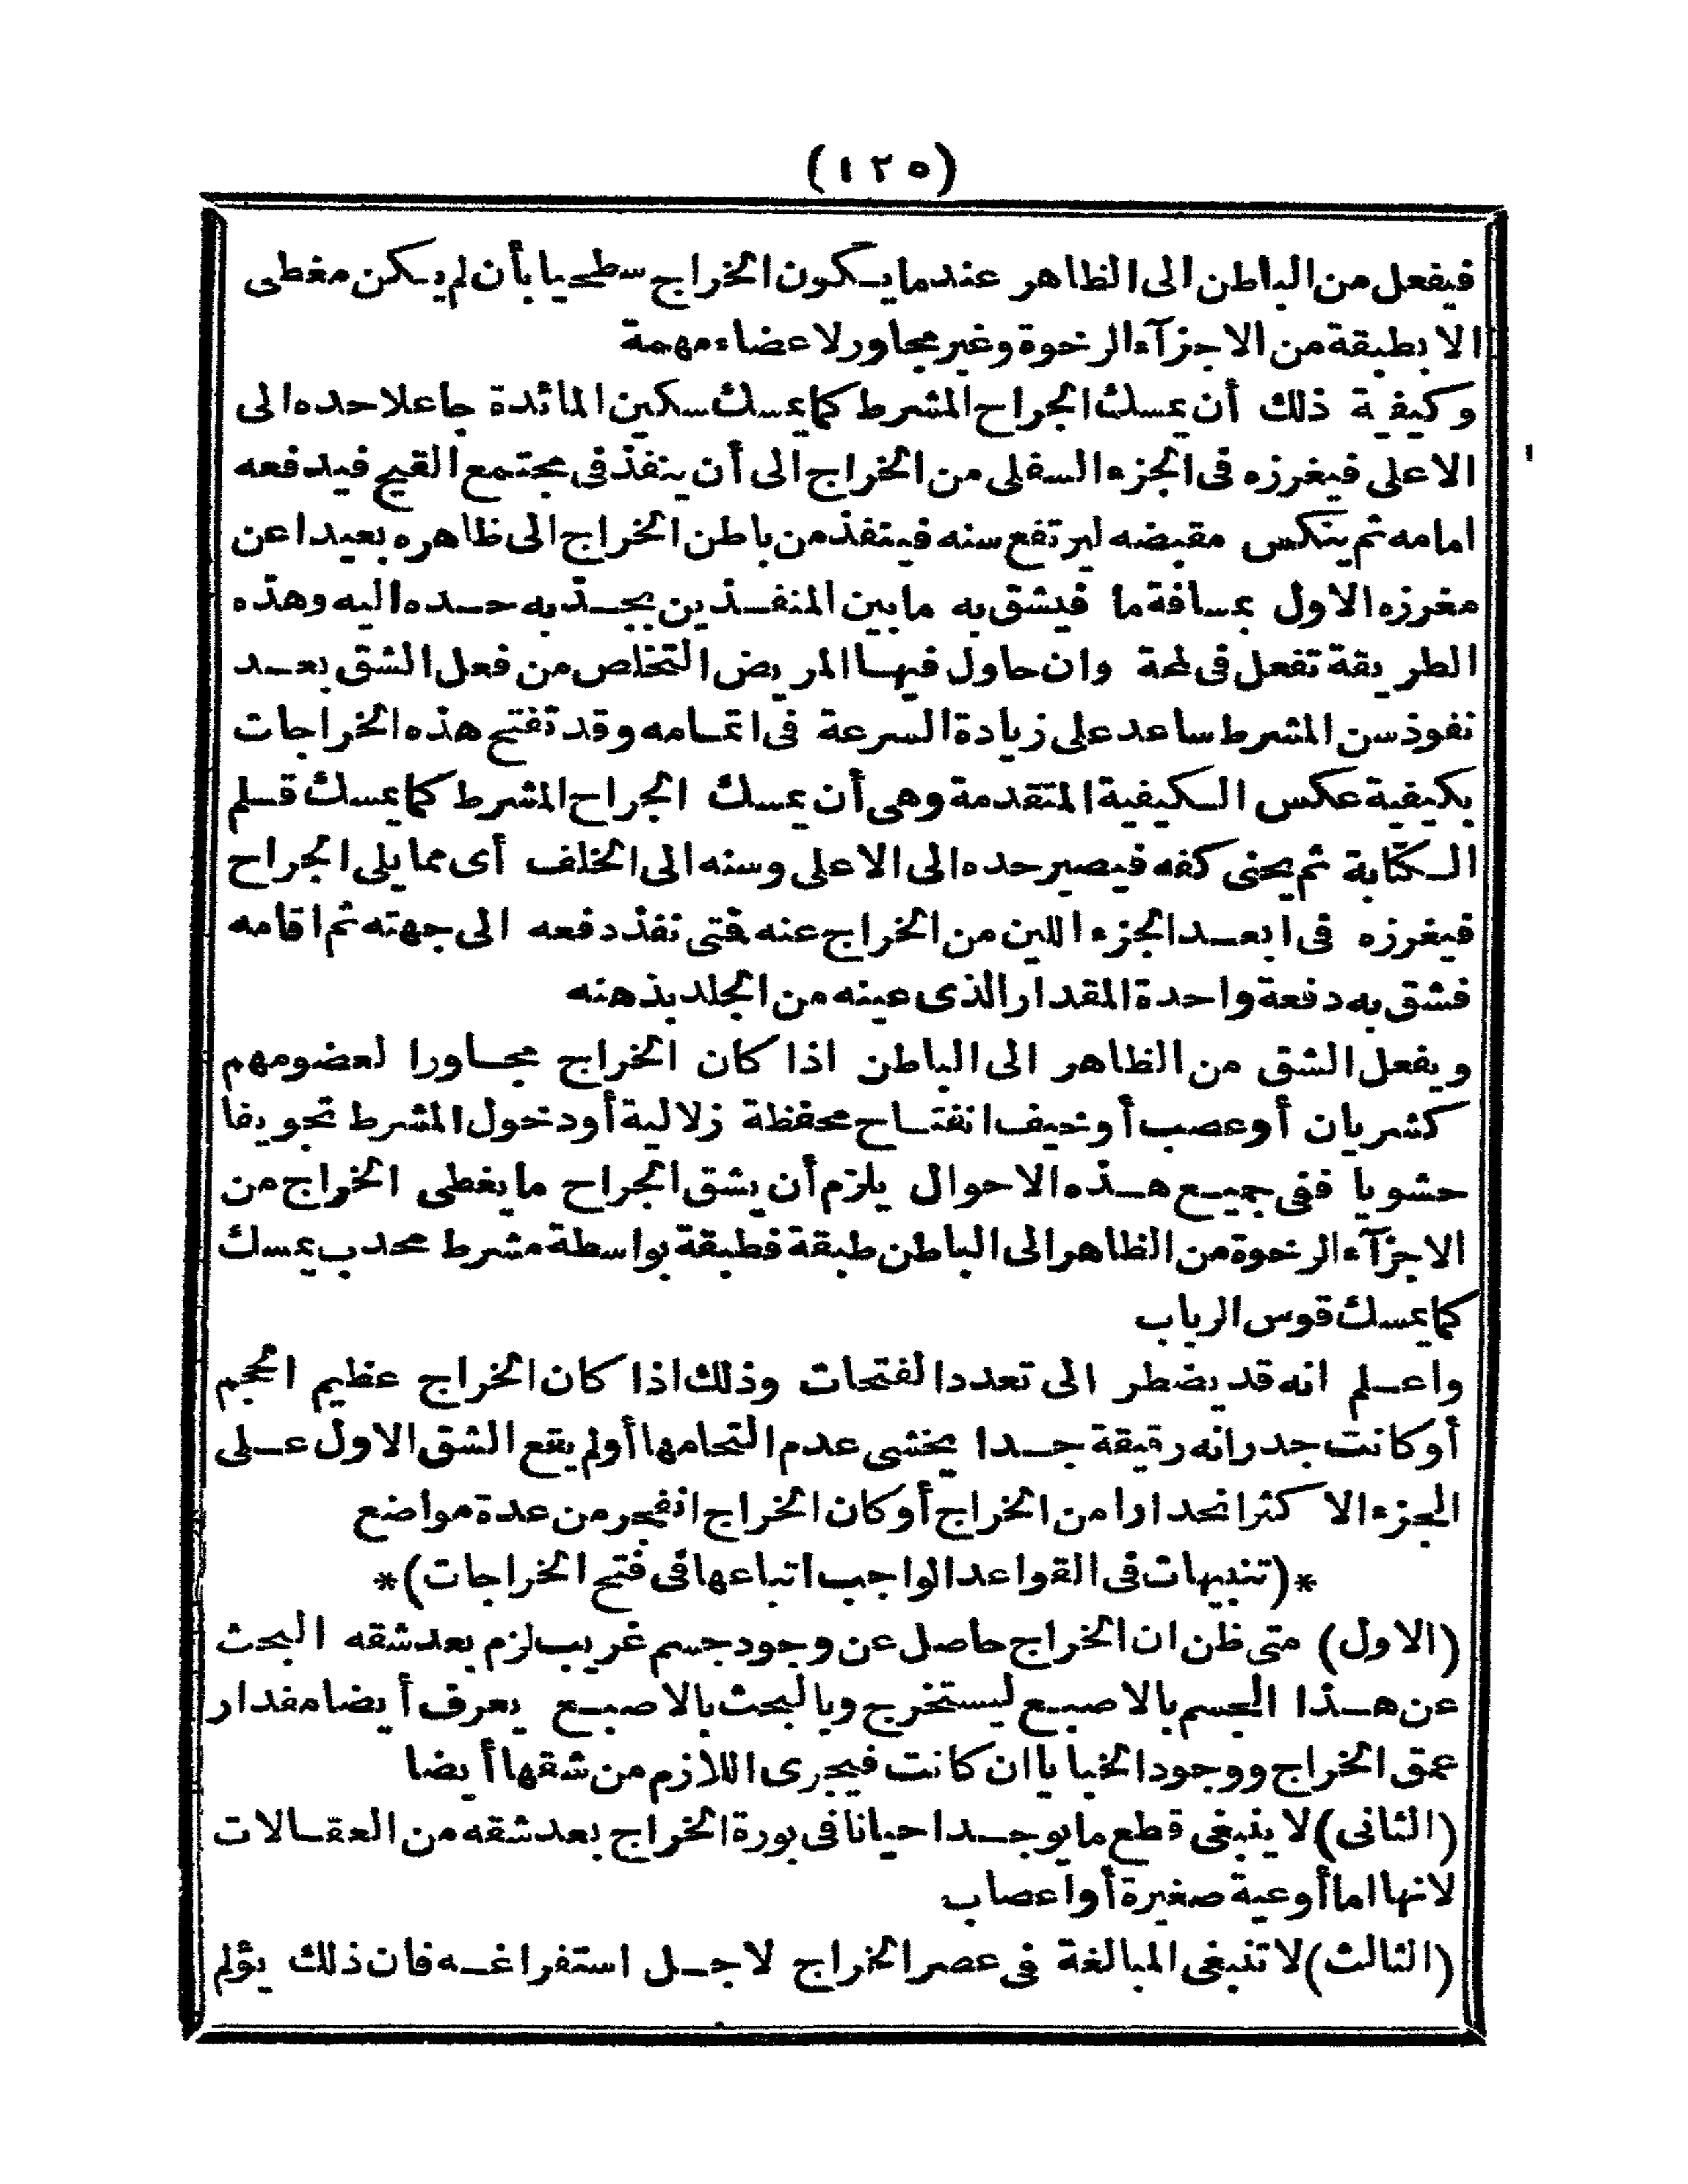 (١٢٥)
فيفعل من الباطن الى الظاهر عندما يكون الخراج سطحيا بأن لم يكن مغطى
الا بطبقة من الاجزآء الرخوة وغير مجاور لاعضاء مهمة
وكيفية ذلك أن يمسك الجراح المشرط كما يمسك سكين المائدة جاعلا حده الى
الاعلى فيغرزه فى الجزء السفلى من الخراج الى أن ينفذ فى مجتمع القيح فيدفعه
امامه ثم ينكس مقبضه ليرتفع سنه فينفذ من باطن الخراج الى ظاهره بعيدا عن
مغرزه الاول بمسافة ما فيشق به ما بين المنفذين بجذبه حده اليه وهذه
الطريقة تفعل فى لمحة وان حاول فيها المريض التخلص من فعل الشق بعد
نفوذ سن المشرط ساعد على زيادة السرعة فى اتمامه وقد تفتح هذه الخراجات
بكيفية عكس الكيفية المتقدمة وهى أن يمسك الجراح المشرط كما يمسك قلم
الكتابة ثم يحنى كفه فيصير حده الى الاعلى وسنه الى الخلف أى مما يلى الجراح
فيغرزه فى ابعد الجزء اللين من الخراج عنه فتى نفذ دفعه الى جهته ثم اقامه
فشق به دفعة واحدة المقدار الذى عينه من الجلد بذهنه
ويفعل الشق من الظاهر الى الباطن اذا كان الخراج مجاورا لعضو مهم
كشريان أو عصب أو خيف انفتاح محفظة زلالية أو دخول المشرط تجويفا
حشويا ففى جميع هذه الاحوال يلزم أن يشق الجراح ما يغطى الخراج من
الاجزآء الرخوة من الظاهر الى الباطن طبقة فطبقة بواسطة مشرط محدب يمسك
كما يمسك قوس الرباب
واعلم انه قد يضطر الى تعدد الفتحات وذلك اذا كان الخراج عظيم الحجم
أو كانت جدرانه رقيقة جدا يخشى عدم التحامها أو لم يقع الشق الاول على
الجزء الاكثر انحدارا من الخراج أو كان الخراج انفجر من عدة مواضع
*(تنبيهات فى القواعد الواجب اتباعها فى فتح الخراجات)*
(الاول) متى ظن ان الخراج حاصل عن وجود جسم غريب لزم بعد شقه البحث
عن هذا الجسم بالاصبع ليستخرج وبالبحث بالاصبع يعرف أيضا مقدار
عمق الخراج ووجود الخبايا ان كانت فيجرى اللازم من شقها أيضا
(الثانى) لا ينبغى قطع ما يوجد احيانا فى بورة الخراج بعد شقه من العقالات
لانها اما أوعية صغيرة أو اعصاب
(الثالث) لا تنبغى المبالغة فى عصر الخراج لاجل استفراغه فان ذلك يؤلم